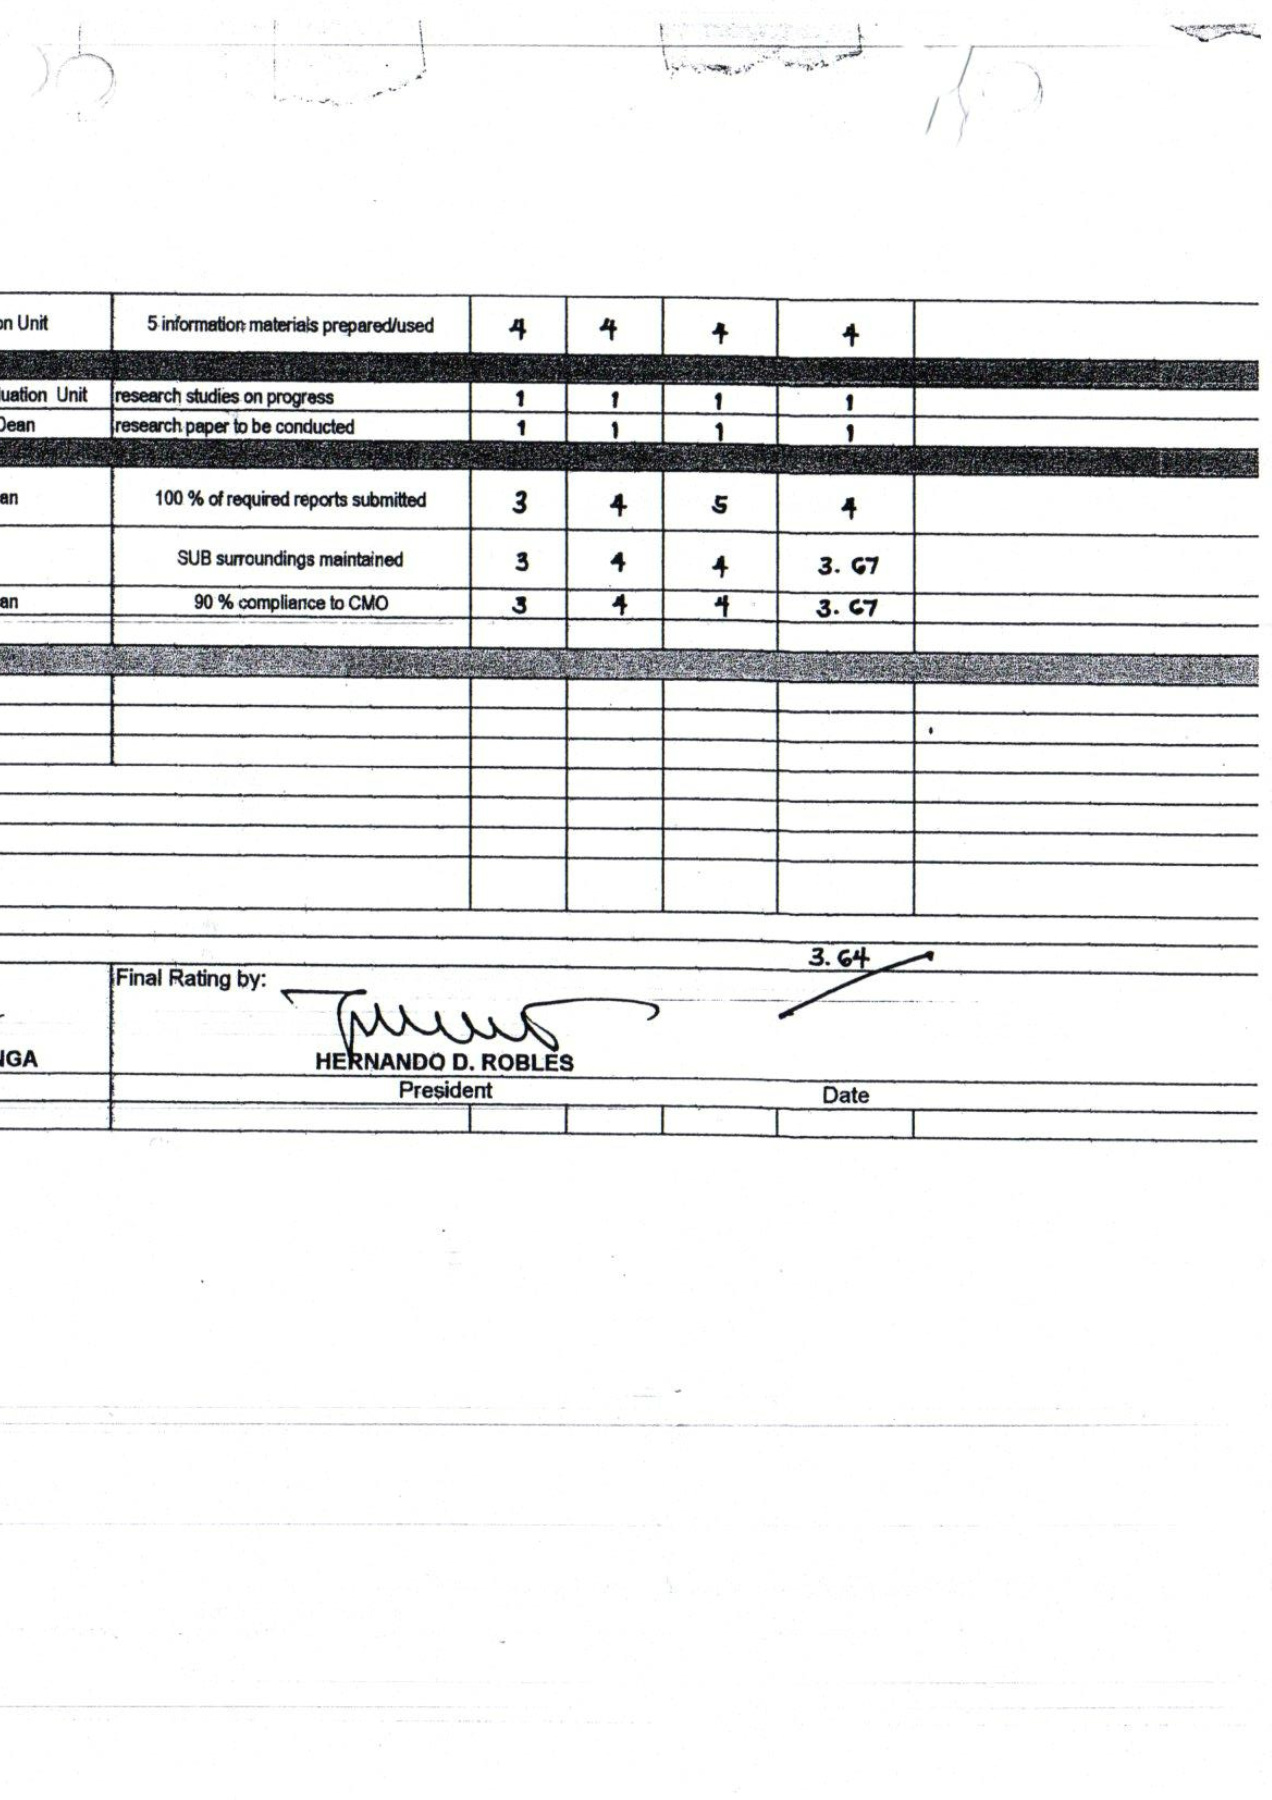 on Unit 5 information materials prepared/used 4 4 4 4
luation Unit research studies on progress 1 1 1 1
Dean research paper to be conducted 1 1 1 1
an 100 % of required reports submitted 3 4 5 4
SUB surroundings maintained 3 4 4 3.67
an 90 % compliance to CMO 3 4 4 3.67
3.64
Final Rating by:
NGA HERNANDO D. ROBLES
President Date